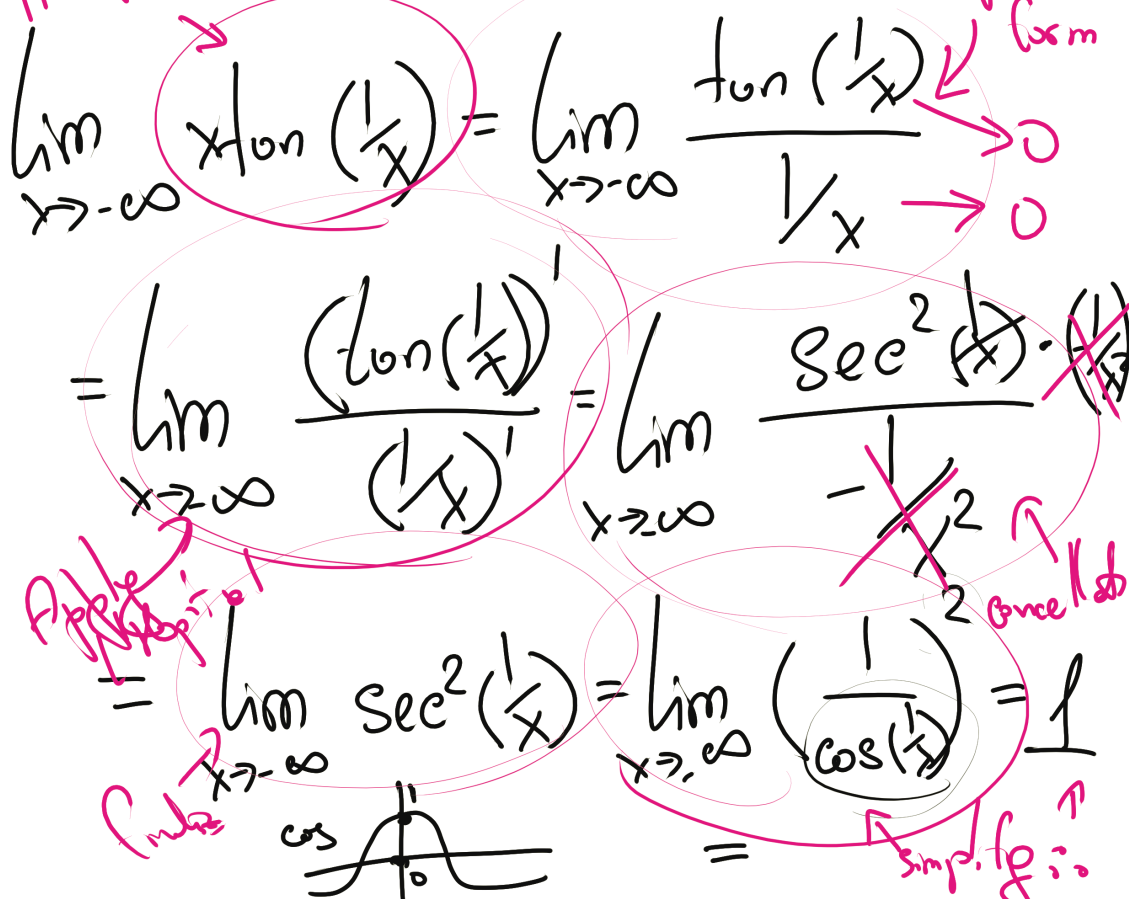 form
lim x→-∞ x tan (1/x) = lim x→-∞ tan (1/x) / 1/x → 0 → 0
= lim x→-∞ (tan (1/x))' / (1/x)' = lim x→-∞ sec² (1/x) · (1/x²) / -1/x²
Apply
cancel
= lim x→-∞ sec² (1/x) = lim x→-∞ (1 / cos(1/x))² = 1
cos 1 0
= simplify